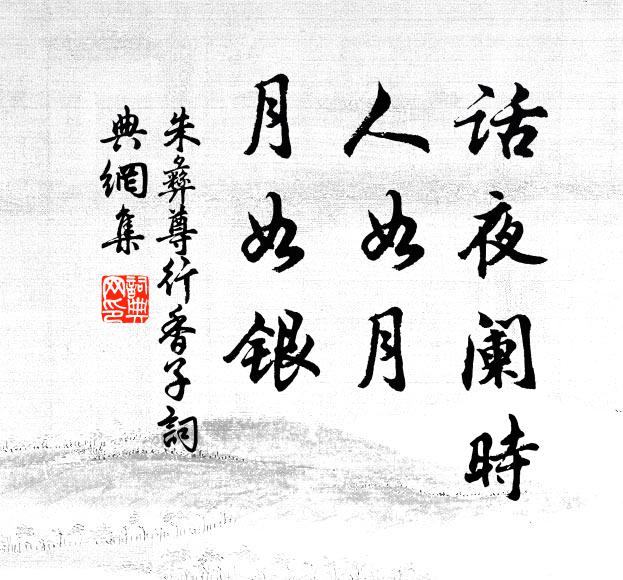 话夜阑时
人如月
月如银
朱彝尊行香子詞
典網集
詞典网印